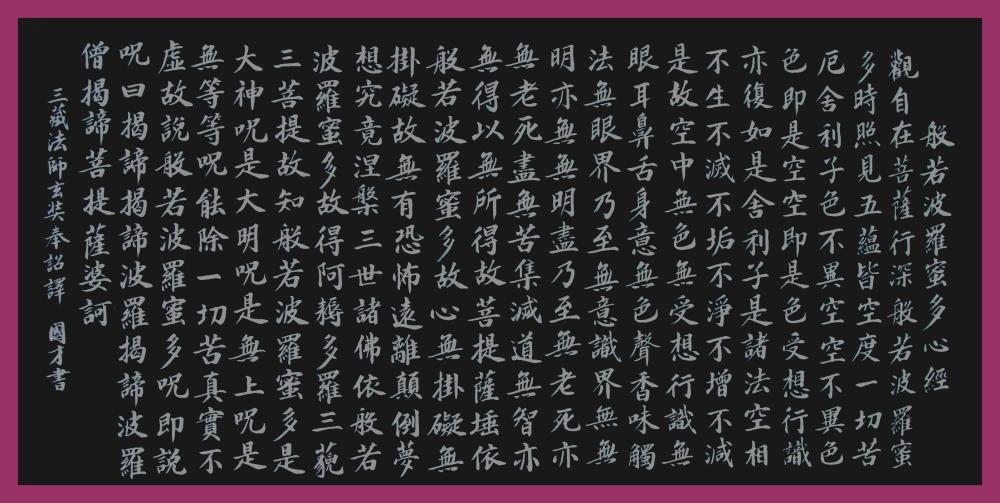 般若波羅蜜多心經
觀自在菩薩行深般若波羅蜜
多時照見五蘊皆空度一切苦
厄舍利子色不異空空不異色
色即是空空即是色受想行識
亦復如是舍利子是諸法空相
不生不滅不垢不淨不增不減
是故空中無色無受想行識無
眼耳鼻舌身意無色聲香味觸
法無眼界乃至無意識界無無
明亦無無明盡乃至無老死亦
無老死盡無苦集滅道無智亦
無得以無所得故菩提薩埵依
般若波羅蜜多故心無掛礙無
掛礙故無有恐怖遠離顛倒夢
想究竟涅槃三世諸佛依般若
波羅蜜多故得阿耨多羅三藐
三菩提故知般若波羅蜜多是
大神呪是大明呪是無上呪是
無等等呪能除一切苦真實不
虛故說般若波羅蜜多呪即說
呪曰揭諦揭諦波羅揭諦波羅
僧揭諦菩提薩婆訶
三藏法師玄奘奉詔譯 國才書